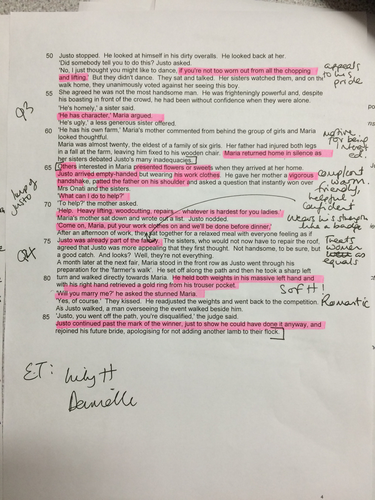 50 Justo stopped. He looked at himself in his dirty overalls. He looked back at her.
'Did somebody tell you to do this? Justo asked.
'No, I just thought you might like to dance, if you're not too worn out from all the chopping
and lifting.' But they didn't dance. They sat and talked. Her sisters watched them, and on the
walk home, they unanimously voted against her seeing this boy.
appeals
to his
pride
55 She agreed he was not the most handsome man. He was frighteningly powerful and, despite
his boasting in front of the crowd, he had been without confidence when they were alone.
'He's homely,' a sister said.
Q3
'He has character,' Maria argued.
'He's ugly,' a less generous sister offered.
60 'He has his own farm,' Maria's mother commented from behind the group of girls and Maria
looked thoughtful.
Maria was almost twenty, the eldest of a family of six girls. Her father had injured both legs
in a fall at the farm, leaving him fixed to his wooden chair. Maria returned home in silence as
her sisters debated Justo's many inadequacies.
for being
65 Others interested in Maria presented flowers or sweets when they arrived at her home.
Justo arrived empty-handed but wearing his work clothes. He gave her mother a vigorous
handshake, patted the father on his shoulder and asked a question that instantly won over
Mrs Onati and the sisters.
Justo
'What can I do to help?'
warm
friendly,
helpful
confident
70 'To help?' the mother asked.
'Help. Heavy lifting, woodcutting, repairs... whatever is hardest for you ladies.'
Maria's mother sat down and wrote out a list. Justo nodded.
'Come on, Maria, put your work clothes on and we'll be done before dinner.'
wears his strength
like a badge
After an afternoon of work, they sat together for a relaxed meal with everyone feeling as if
Q4
75 Justo was already part of the family. The sisters, who would not now have to repair the roof,
agreed that Justo was more appealing than they first thought. Not handsome, to be sure, but
a good catch. And looks? Well, they're not everything.
Treats
women
as
equals
A month later at the next fair, Maria stood in the front row as Justo went through his
preparation for the 'farmer's walk'. He set off along the path and then he took a sharp left
80 turn and walked directly towards Maria. He held both weights in his massive left hand and
with his right hand retrieved a gold ring from his trouser pocket.
SoFt!
'Will you marry me?' he asked the stunned Maria.
'Yes, of course.' They kissed. He readjusted the weights and went back to the competition.
Romantic
As Justo walked, a man overseeing the event walked beside him.
85 'Justo, you went off the path, you're disqualified,' the judge said.
Justo continued past the mark of the winner, just to show he could have done it anyway, and
rejoined his future bride, apologising for not adding another lamb to their flock.
E.T:
Lily H
Danielle